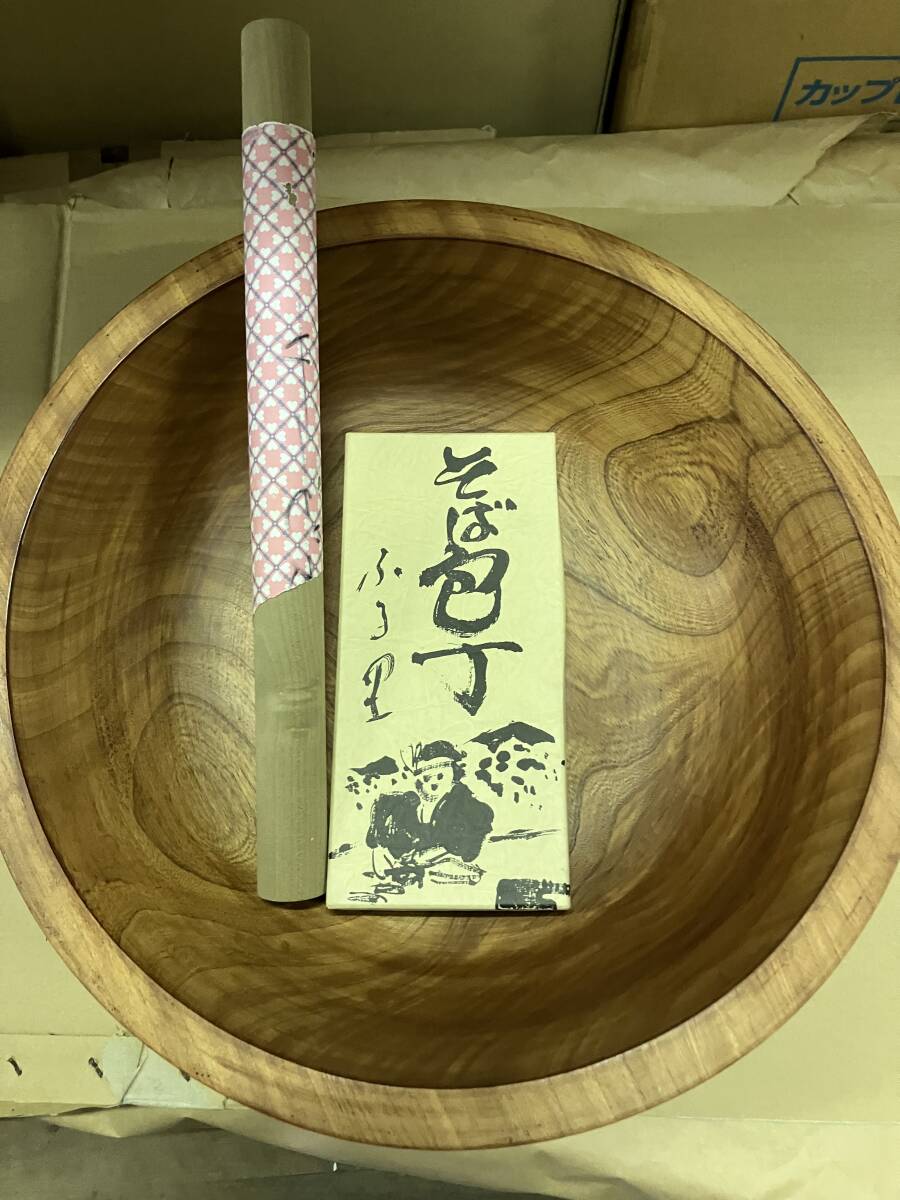 カップ
そば包丁
ふる里